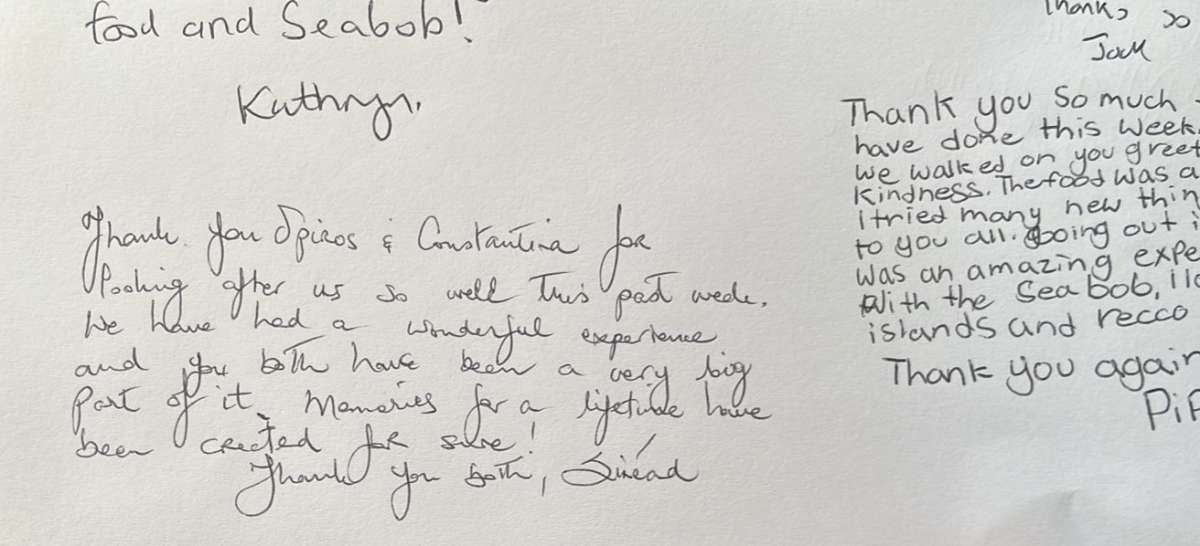 food and Seabob!
Kathryn.
Thank you Spiros & Constantina for
looking after us so well this past week.
We have had a wonderful experience
and you both have been a very big
part of it. Memories for a lifetime have
been created for sure!
Thank you both, Sinéad
Thanks so
Jack
Thank you so much
have done this week
we walked on you greet
kindness. The food was a
I tried many new thin
to you all. Going out i
was an amazing expe
With the Seabob,
islands and recco
Thank you again
Pip